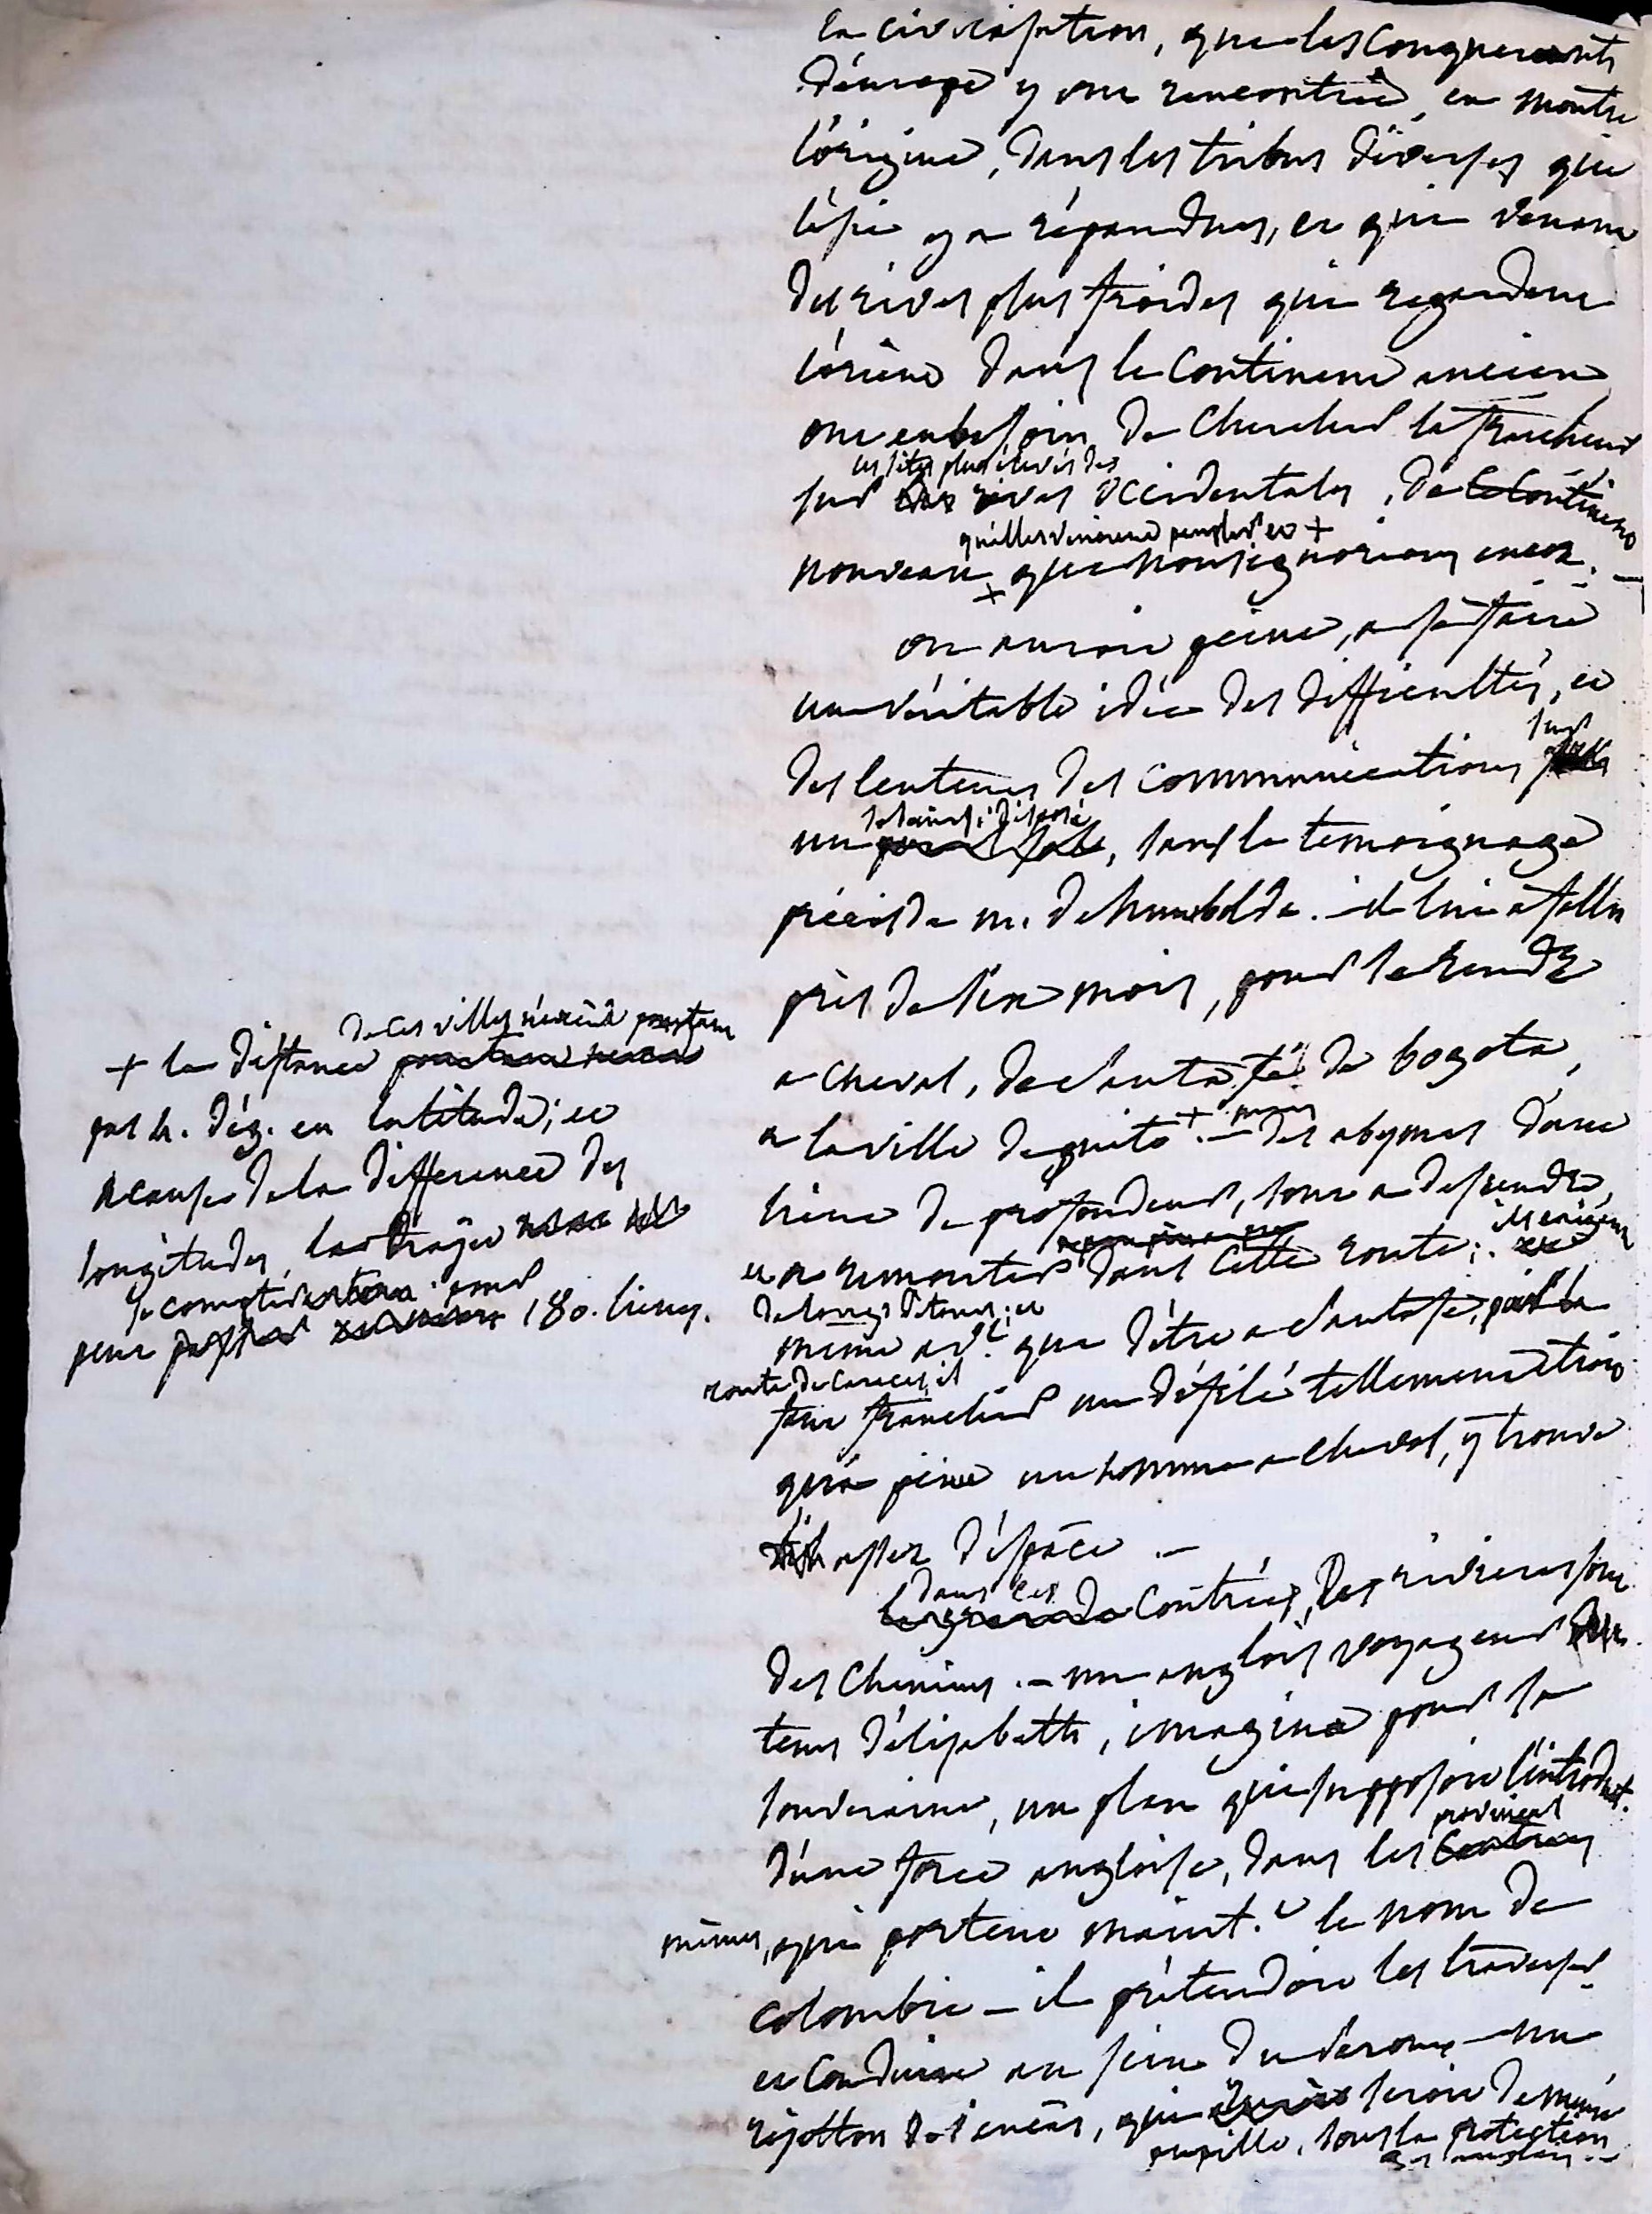 la civilisation, que les conquerants
d'éurope y ont rencontrée, en montre
l'origine, dans les tribus diverses que
l'asie y a répandues, et qui venant
des rives plus froides qui regardent
l'orient dans le continent ancien
ont eu besoin de chercher la fraicheur
les sites plus élevés des
sur rives occidentales, de le continent
qu'elles venoient peupler et +
nouveau que nous ignorions encor. —
+
on auroit peine, a se faire
une véritable idée des difficultés, et
sur
des lenteurs des communications
un, sans le temoignage
précis de m. de humboldt. — il lui a fallu
près de six mois, pour se rendre
a cheval, de santa fé de bogota,
a la ville de quito + — mais des abymes d'une
lieue de profondeur, sont a descendre,
et a remonter dans cette route; ils exigent
de longs détours; et
même av.t que d'être a santa fé, par la
route de caracas, il
faut franchir un défilé tellement étroit
qu'a peine un homme a cheval, y trouve
assez d'éspace. —
dans ces
contrées, les rivieres sont
des chemins. — un anglois voyageur
tems d'élisabeth, imagina pour sa
souveraine, un plan qui supposoit l'introduct.
provinces
d'une force angloise, dans les contrées
mêmes, qui portent maint.t le nom de
colombie — il prétendoit les traverser
et conduire au sein du perou, un
rejetton des incas, qui seroit demeuré
pupille, sous la protection
des anglois. —
de ces villes n'excède pourtant
+ la distance pourtant
pas 4. dég. en latitude; et
a cause de la difference des
longitudes, le trajet
se compter pour
peut passer 180. lieues.